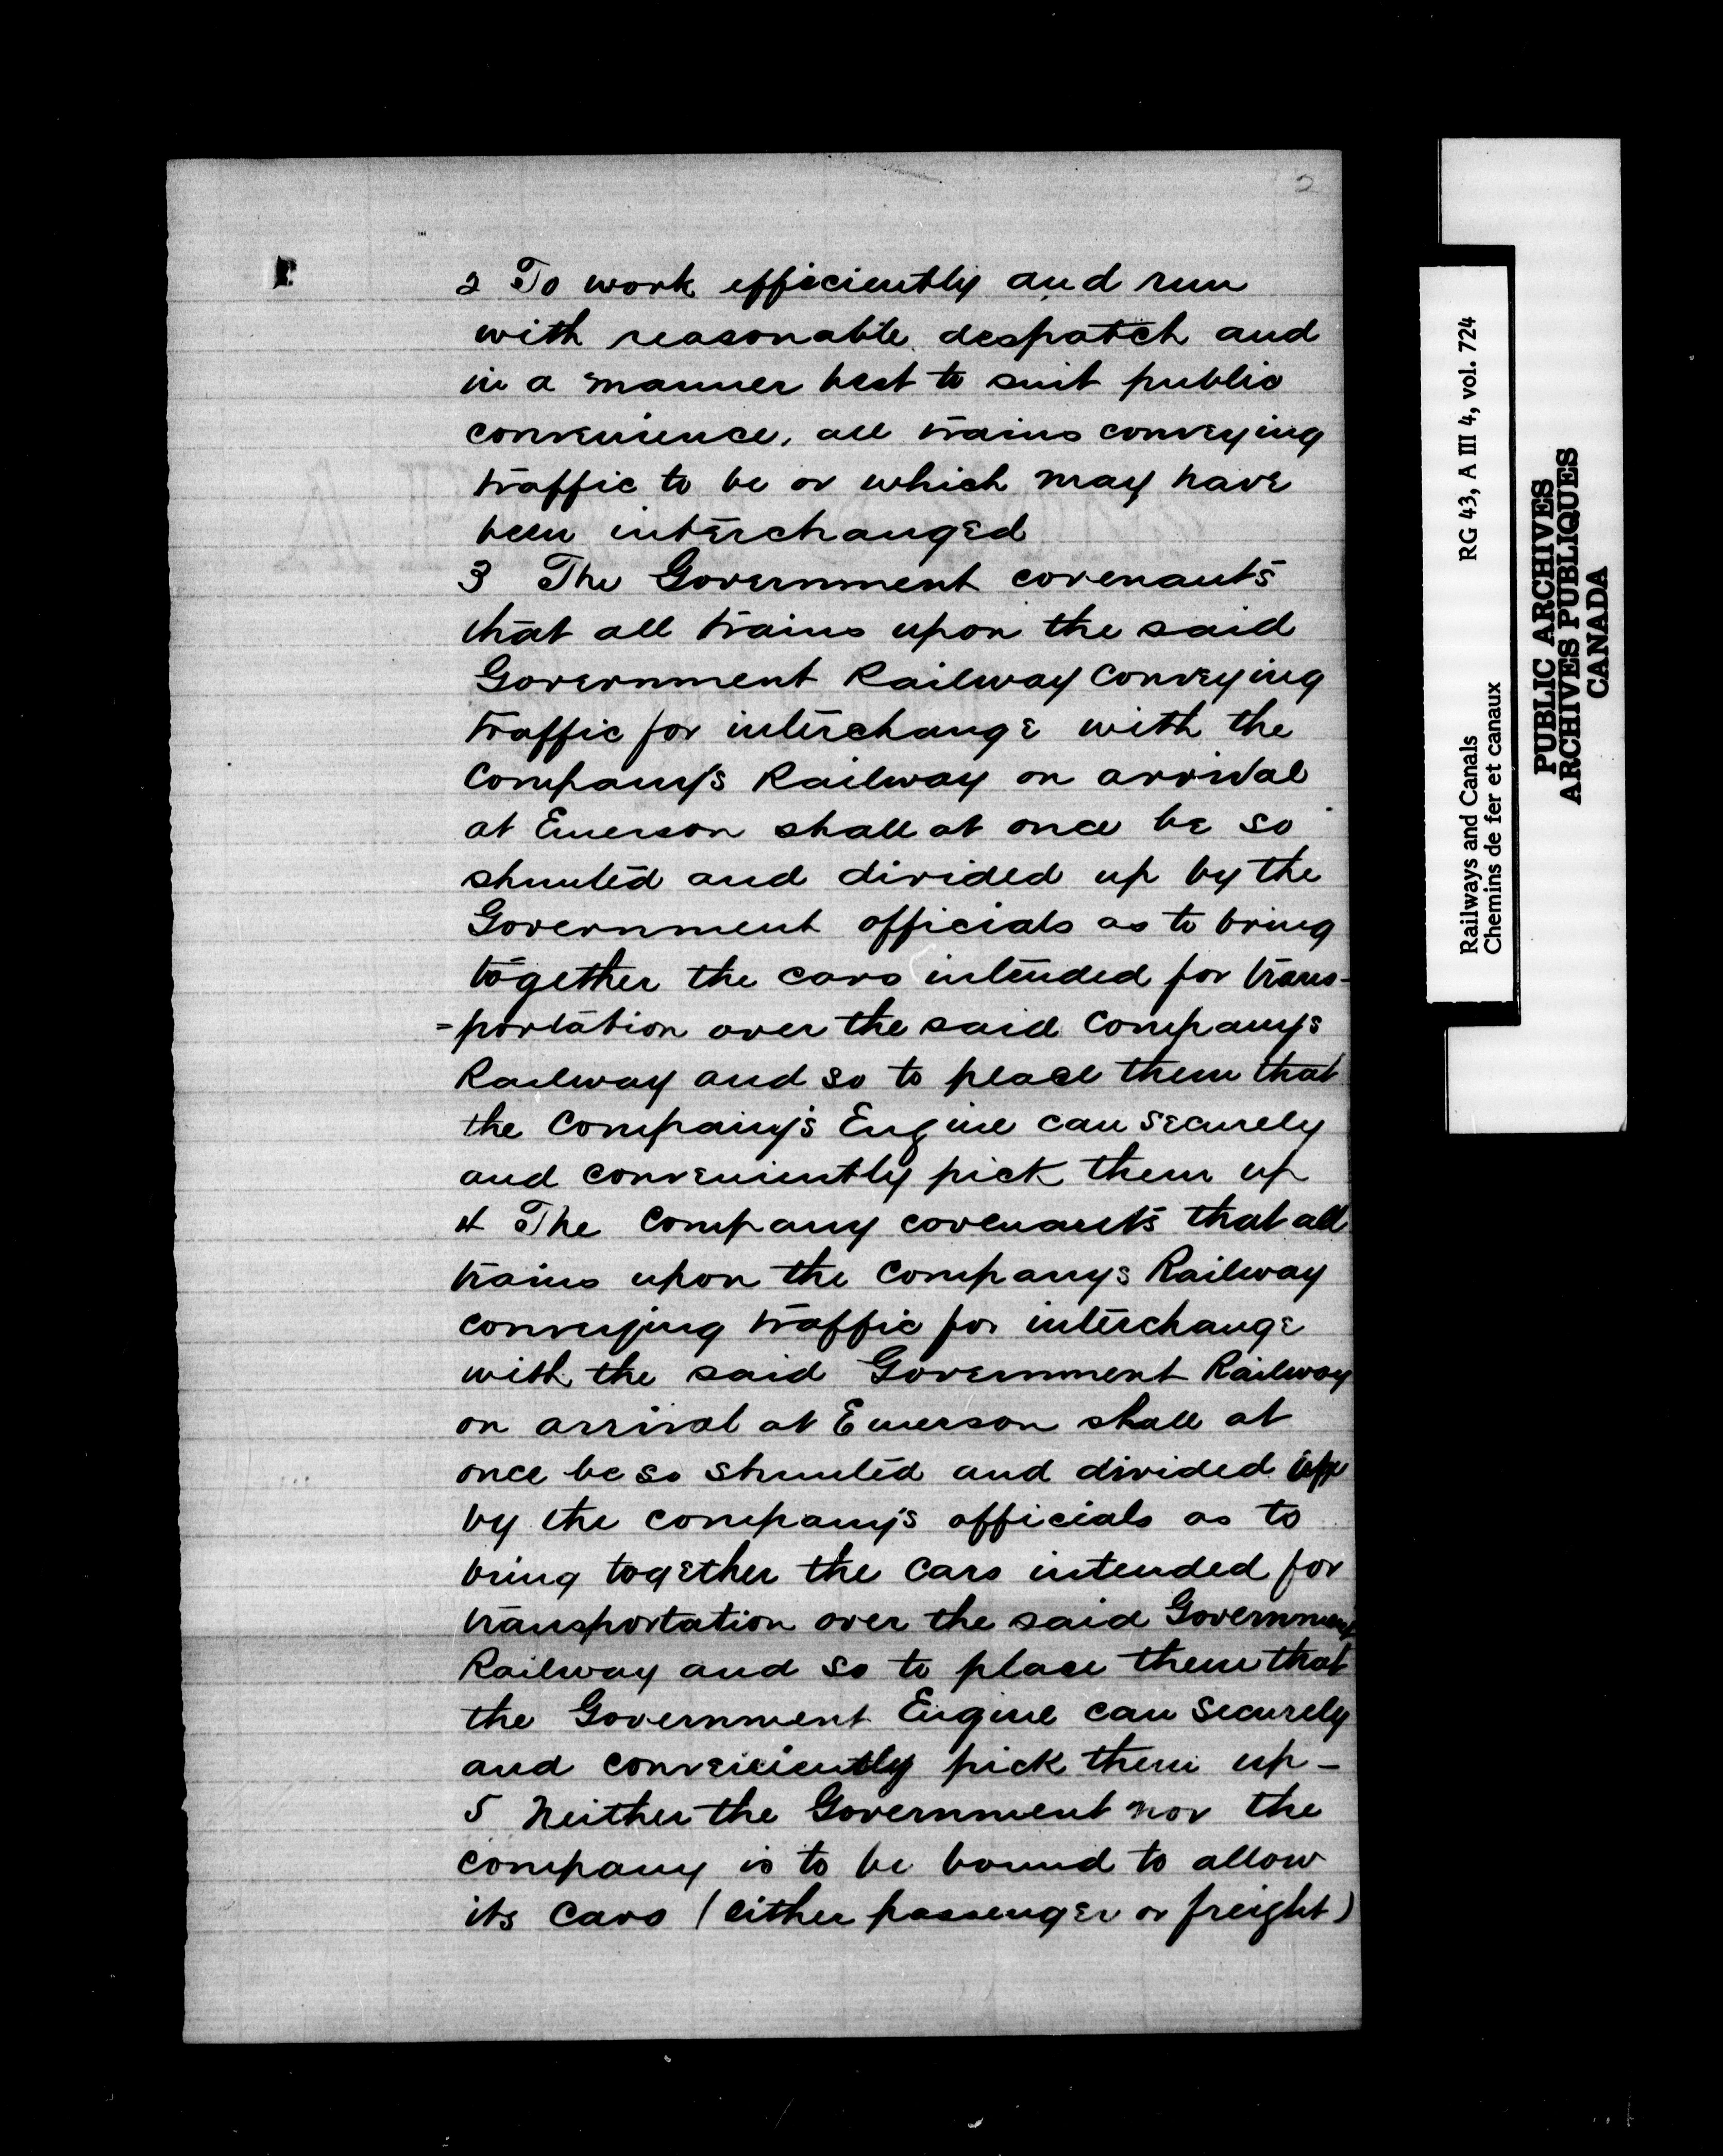 2
2 To work efficiently and run
with reasonable despatch and
in a manner best to suit public
convenience, all trains conveying
traffic to be or which may have
been interchanged
3 The Government covenants
that all trains upon the said
Government Railway conveying
traffic for interchange with the
Company's Railway on arrival
at Emerson shall at once be so
shunted and divided up by the
Government officials as to bring
together the cars intended for trans-
=portation over the said Company's
Railway and so to place them that
the Company's Engine can securely
and conveniently pick them up
4 The Company covenants that all
trains upon the Companys Railway
conveying traffic for interchange
with the said Government Railway
on arrival at Emerson shall at
once be so shunted and divided up
by the company's officials as to
bring together the cars intended for
transportation over the said Government
Railway and so to place them that
the Government Engine can securely
and conveniently pick them up -
5 Neither the Government nor the
company is to be bound to allow
its cars (either passenger or freight)
Railways and Canals RG 43, A III 4, vol. 724
Chemins de fer et canaux
PUBLIC ARCHIVES
ARCHIVES PUBLIQUES
CANADA